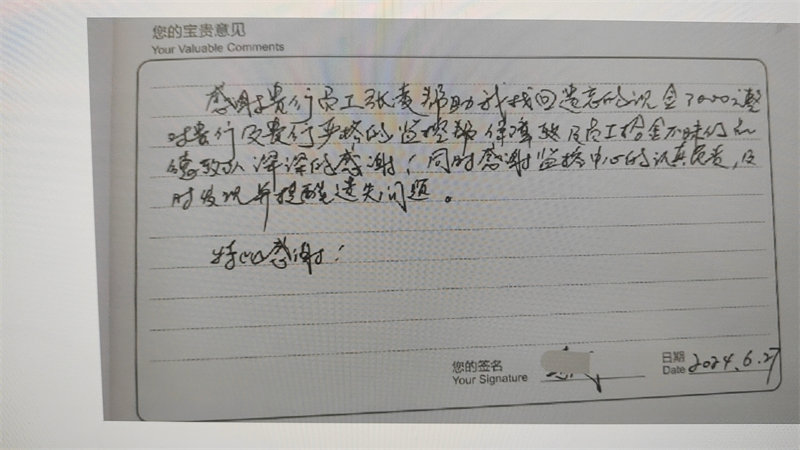 您的宝贵意见
Your Valuable Comments
感谢贵行员工张 帮助我找回遗忘的现金7000元整
对贵行及贵行严格的监控 保障 及员工拾金不昧的品
德致以深深的感谢！同时感谢监控中心的认真负责，及
时发现并提醒遗失问题。
特此感谢！
您的签名
Your Signature
日期
Date 2024.6.27